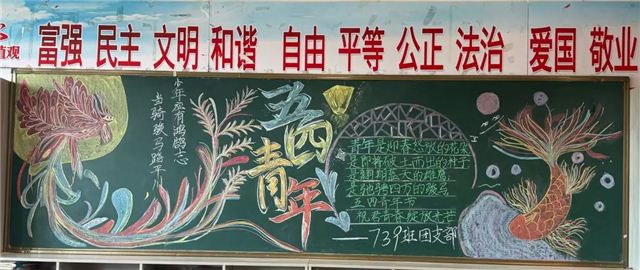 值观
富强 民主 文明 和谐 自由 平等 公正 法治 爱国 敬业
少年应有鸿鹄志
当骑骏马踏平川
五四
青年
青年是迎春怒放的花朵
是即将破土而出的种子
是翱翔蓝天的雄鹰
是驰骋四方的骏马
五四青年节
祝君青春绽放光芒
——739班团支部